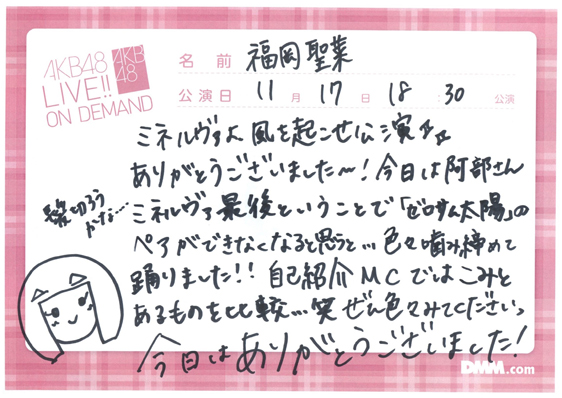 AKB48
LIVE!!
ON DEMAND
AKB
48
名前 福岡聖菜
公演日 11月17日 18:30公演
ミネルヴァよ風を起こせ公演☆☆
ありがとうございました〜!今日は阿部さん
ミネルヴァ最後ということで「ゼロサム太陽」の
ペアができなくなると思うと…色々噛み締めて
踊りました!!自己紹介MCではこみと
あるものを比較…笑 ぜひ色々みてくださいっ
今日はありがとうございました!
髪切ろう
かな…
DMM.com